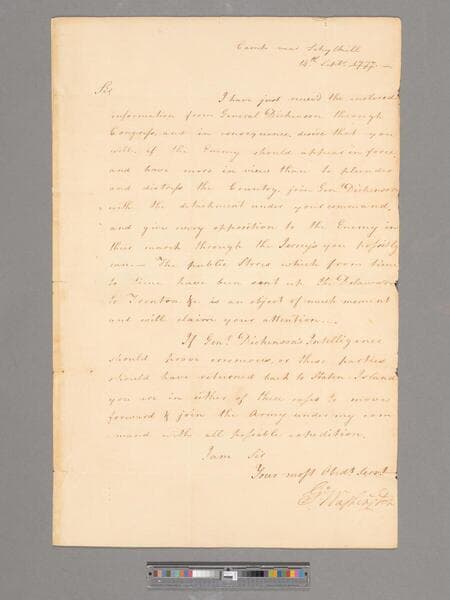 Camp near Schuylkill
14th Septr. 1777 —
Sir
I have just received the inclosed
information from General Dickinson through
Congress, and in consequence, desire that you
will, if the Enemy should appear in force,
and have more in view than to plunder
and distress the Country, join Genl. Dickinson
with the detachment under your command,
and give every opposition to the Enemy in
their march through the Jerseys you possibly
can — The public Stores which from time
to time have been sent up the Delaware
to Trenton &c. is an object of much moment
and will claim your attention. —
If Genl. Dickinson's Intelligence
should prove erroneous, or these parties
should have returned back to Staten Island
you are in either of these cases to move
forward & join the Army under my com
mand with all possible expedition.
I am Sir
Your most Obedt. Servt.
Go. Washington